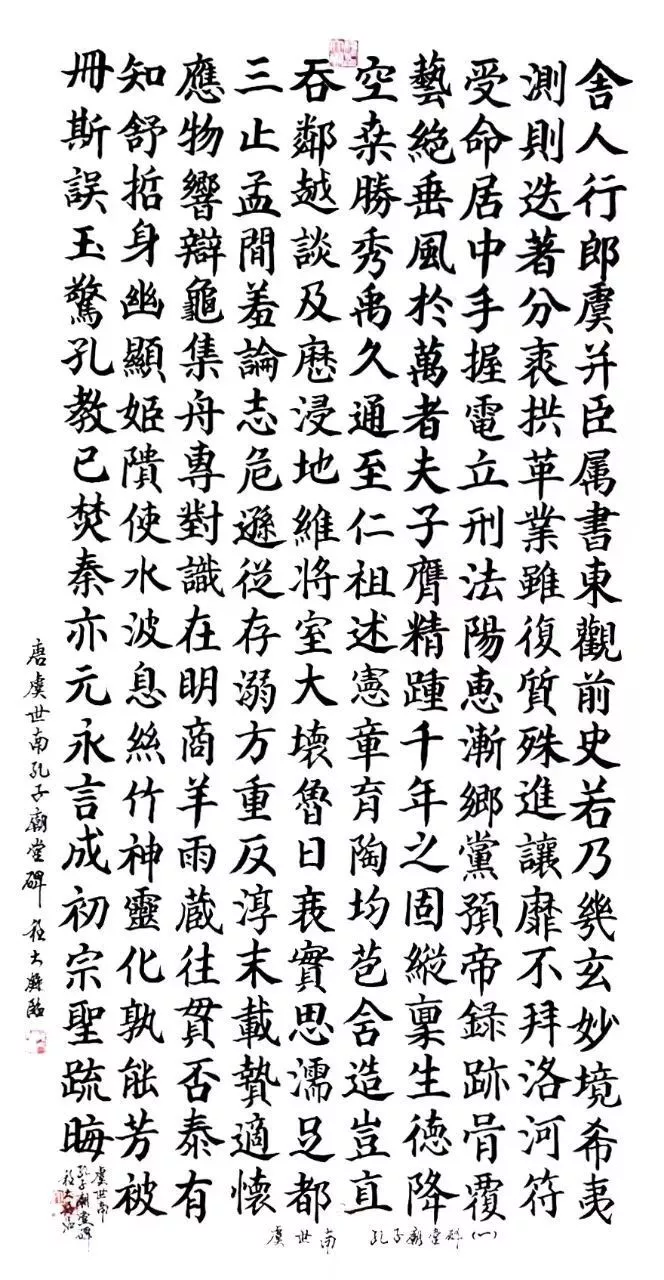 舍人行郎虞并臣属書東觀前史若乃幾玄妙境希夷
測則迭著分裘拱革業雖復質殊進讓靡不拜洛河符
受命居中手握電立刑法陽惠漸鄉黨預帝錄跡骨覆
藝絶垂風於萬者夫子膺精踵千年之固縱稟生德降
空桒勝秀禹久通至仁祖述憲章育陶均苞舍造豈直
吞鄰越談及歷浸地維將室大壞魯日衰實思濡足都
三止孟間羞論志危遜從存溺方重反淳末載贄適懷
應物響辯龜集舟專對識在明商羊雨蔵往貫否泰有
知舒哲身幽顯姬隤使水波息絲竹神靈化孰能芳被
冊斯誤玉驚孔教已焚秦亦元永言成初宗聖疏晦
唐虞世南孔子廟堂碑
虞世南
孔子廟堂碑
虞世南 孔子廟堂碑(一)